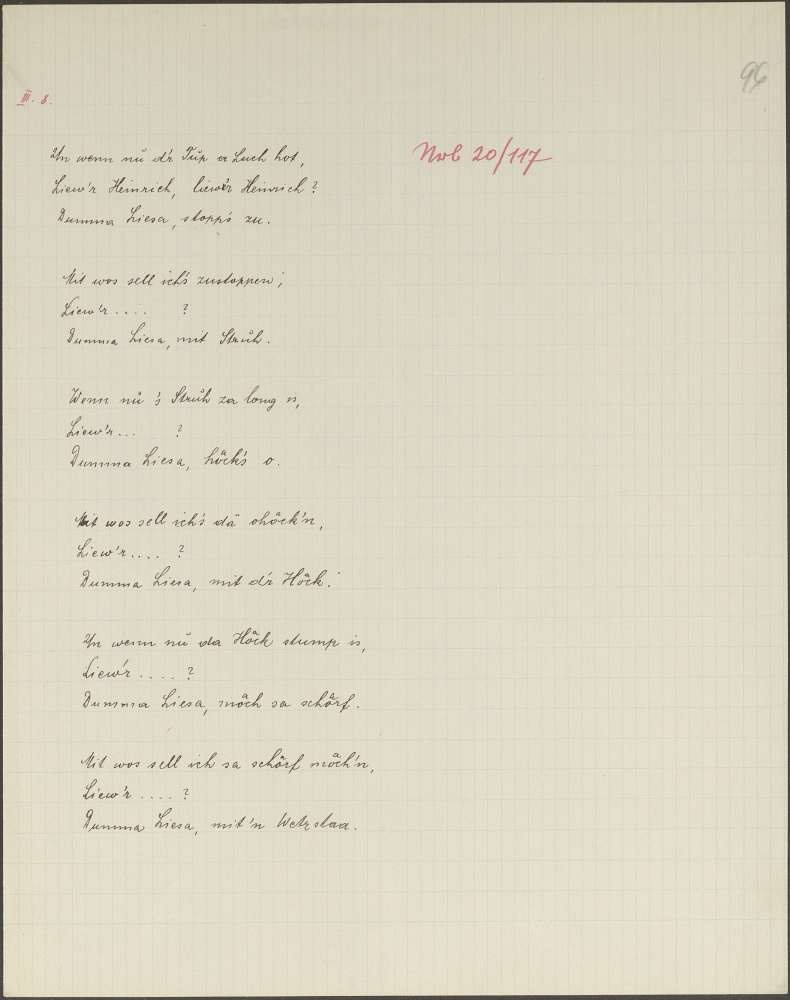 96
III. 8.
Nrb 20/117
Un wenn nů d'r Tůp a Luch hot,
Liew'r Heinrich, liew'r Heinrich?
Dumma Liesa, stopp's zu.
Mit wos sell ich's zustoppen,
Liew'r .... ?
Dumma Liesa, mit Strůh.
Wenn nů 's Strůh za long is,
Liew'r ... ?
Dumma Liesa, håck's o.
Mit wos sell ich's då ohåck'n,
Liew'r .... ?
Dumma Liesa, mit d'r Håck!
Un wenn nů da Håck stump is,
Liew'r .... ?
Dumma Liesa, måch sa schårf.
Mit wos sell ich sa schårf måch'n,
Liew'r .... ?
Dumma Liesa, mit'n Wetzstaa.